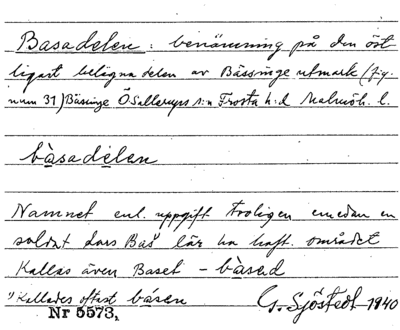 Basadelen: benämning på den öst
ligast belägna delen av Bässinge utmark (fig.
num 31) Bäsinge Ö Sallerups s:n Frosta h:d Malmöh. l.
bàsadelen
Namnet enl. uppgift troligen emedan en
soldat Lars Bas lär ha haft. området
Kallas även Baset - bàsed
1) Kallades oftast básen G. Sjöstedt 1940
Nr 5573,